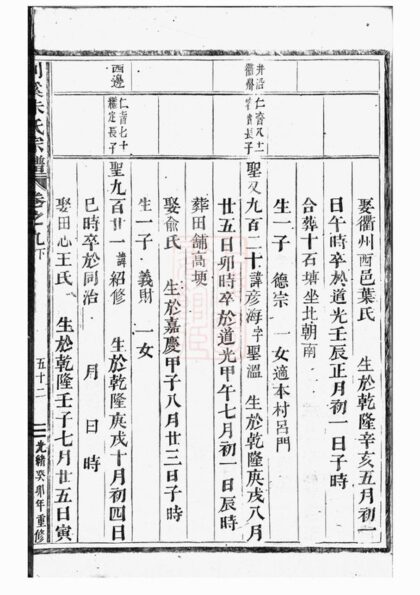 娶衢州西邑葉氏 生於乾隆辛亥五月初一
日午時卒於道光壬辰正月初一日子時
合葬十石塘坐北朝南
生一子 德宗 一女適本村呂門
井沿
長子
聖又九百二十諱彥海字聖溫 生於乾隆庚戌八月
廿五日卯時卒於道光甲午七月初一日辰時
葬田舖高埂
娶俞氏 生於嘉慶甲子八月廿三日子時
生一子 義財 一女
西邊
七十
定長子
聖九百廿一諱紹修 生於乾隆庚戌十月初四日
巳時卒於同治 月 日 時
娶田心王氏 生於乾隆壬子七月廿五日寅
溪朱氏宗譜 卷之九下 五十二 光緒癸卯年重修